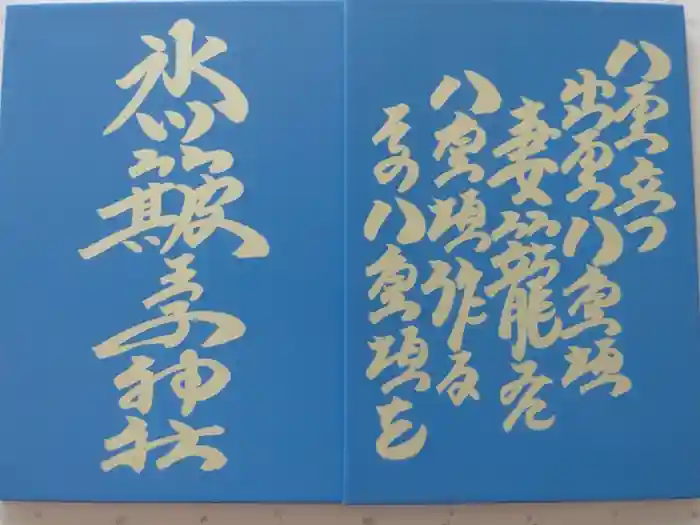 八雲立つ
出雲八重垣
妻籠尓
八重垣作る
その八重垣を
氷川簸王子神社